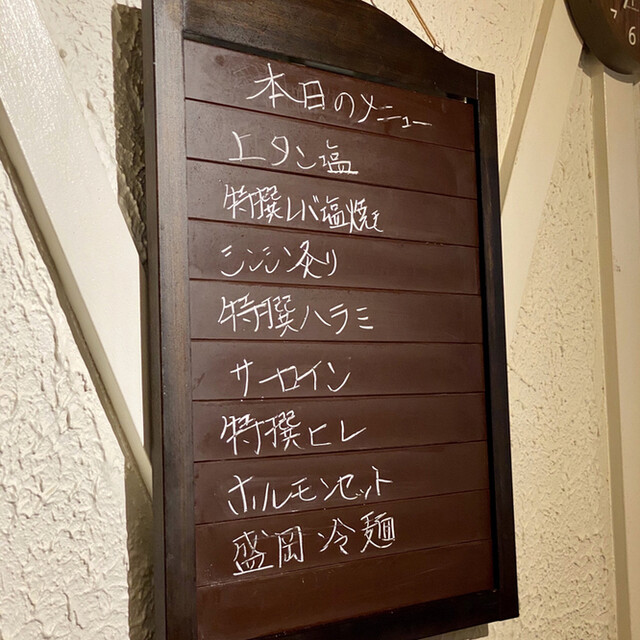 本日のメニュー
上タン塩
特撰レバ塩焼き
シンシン炙り
特撰ハラミ
サーロイン
特撰ヒレ
ホルモンセット
盛岡冷麺
6